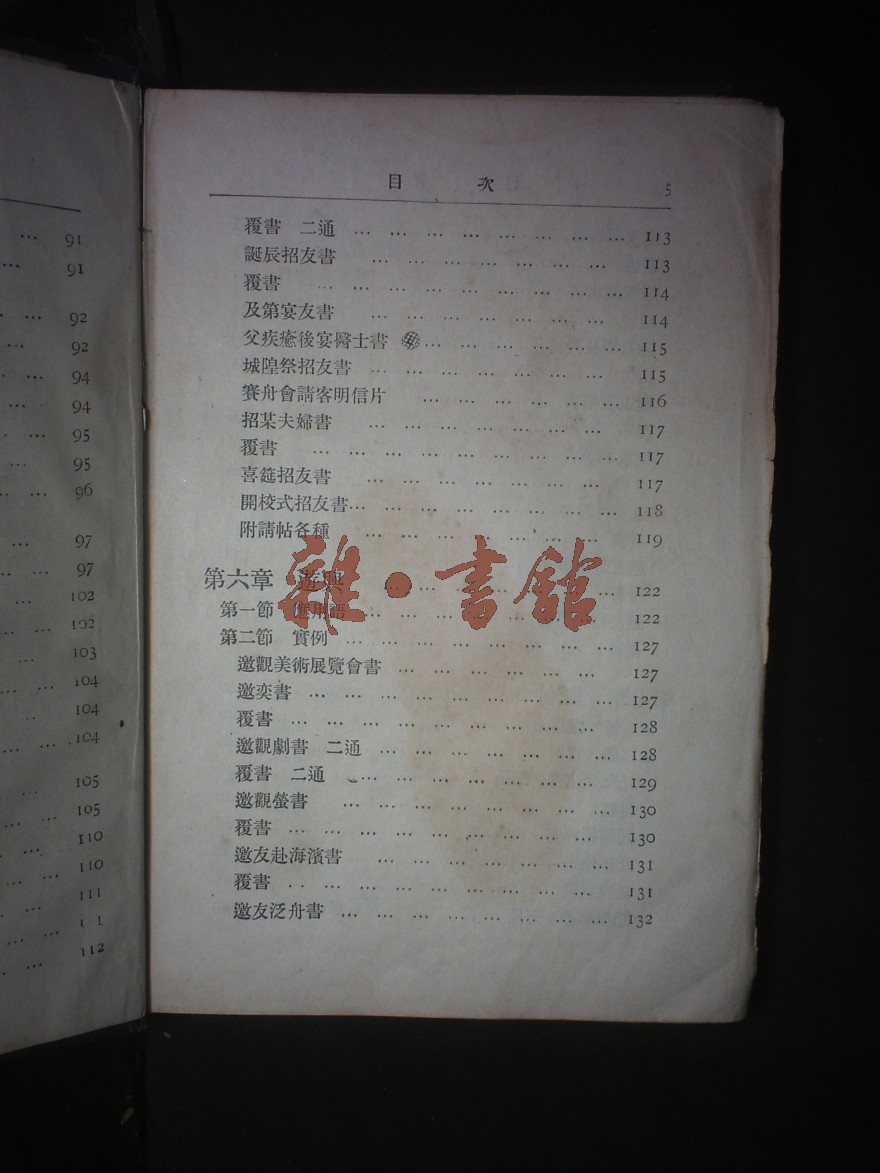 91
91
92
92
94
94
95
95
96
97
97
102
102
103
104
104
104
105
105
110
110
111
112
目 次 5
覆書 二通 … … … … … … … … 113
誕辰招友書 … … … … … … … 113
覆書 … … … … … … … … … 114
及第宴友書 … … … … … … … 114
父疾癒後宴醫士書 … … … … … … 115
城隍祭招友書 … … … … … … … 115
賽舟會請客明信片 … … … … … … 116
招某夫婦書 … … … … … … … 117
覆書 … … … … … … … … … 117
喜筵招友書 … … … … … … … 117
開校式招友書… … … … … … … … 118
附請帖各種 … … … … … … … 119
第六章 遊興 … … … … … … … 122
第一節 應用語 … … … … … … … 122
第二節 實例 … … … … … … … … 127
邀觀美術展覽會書 … … … … … … 127
邀奕書 … … … … … … … … … 127
覆書 … … … … … … … … … 128
邀觀劇書 二通 … … … … … … … 128
覆書 二通 … … … … … … … … 129
邀觀螢書 … … … … … … … … 130
覆書 … … … … … … … … … 130
邀友赴海濱書 … … … … … … … 131
覆書 … … … … … … … … … 131
邀友泛舟書 … … … … … … … … 132
雜·書舘